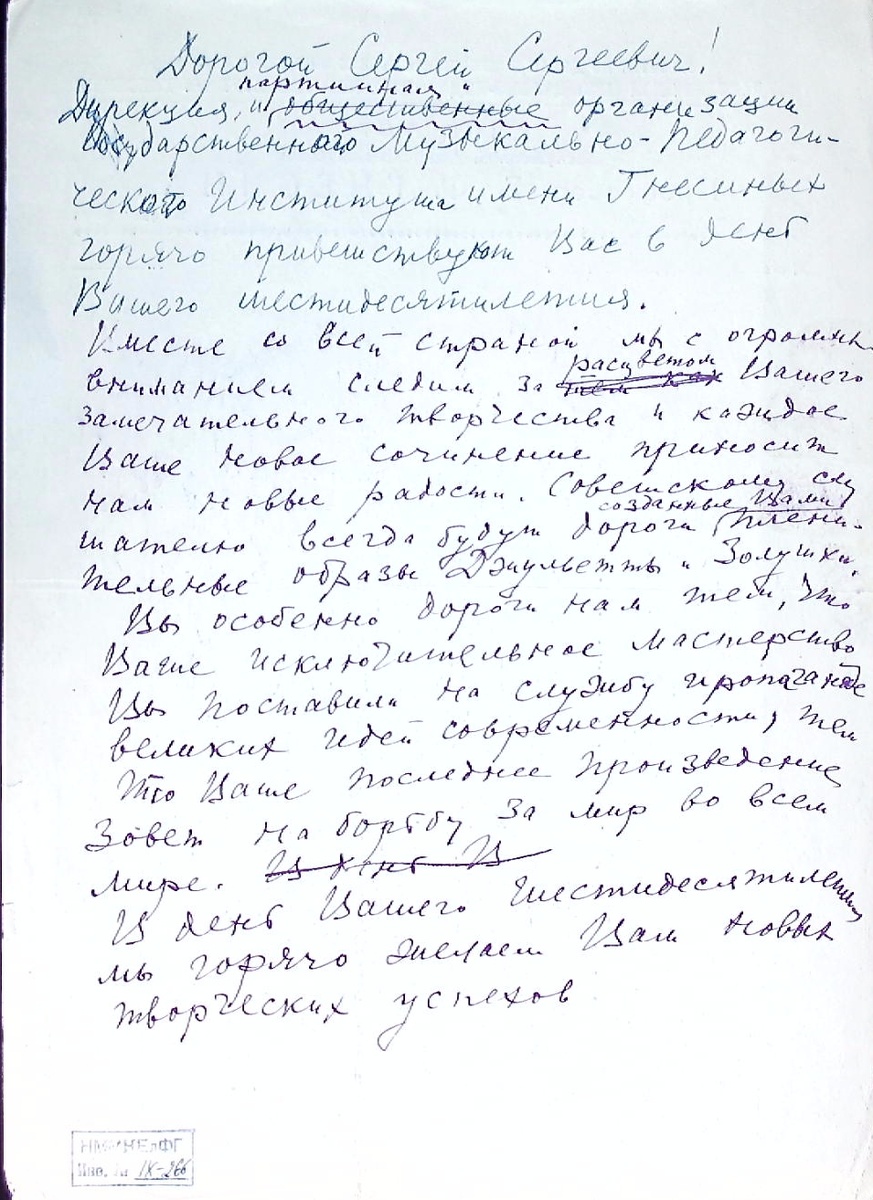 Дорогой Сергей Сергеевич!
партийная и
Дирекция, и общественные организации
Государственного Музыкально-Педагоги-
ческого Института имени Гнесиных
горячо приветствуют Вас в день
Вашего шестидесятилетия.
Вместе со всей страной мы с огромны
расцветом
вниманием следим за тем как Вашего
замечательного творчества и каждое
Ваше новое сочинение приносит
нам новые радости. Советскому слу
созданные Вами
шателю всегда будут дороги плени-
тельные образы Джульетты и Золушки.
Вы особенно дороги нам тем, что
Ваше исключительное мастерство
Вы поставили на службу пропаганде
великих идей современности, тем
что Ваше последнее произведение
зовет на борьбу за мир во всем
мире. В день В
В день Вашего шестидесятилетия
мы горячо желаем Вам новых
творческих успехов
Инв. № IX-266